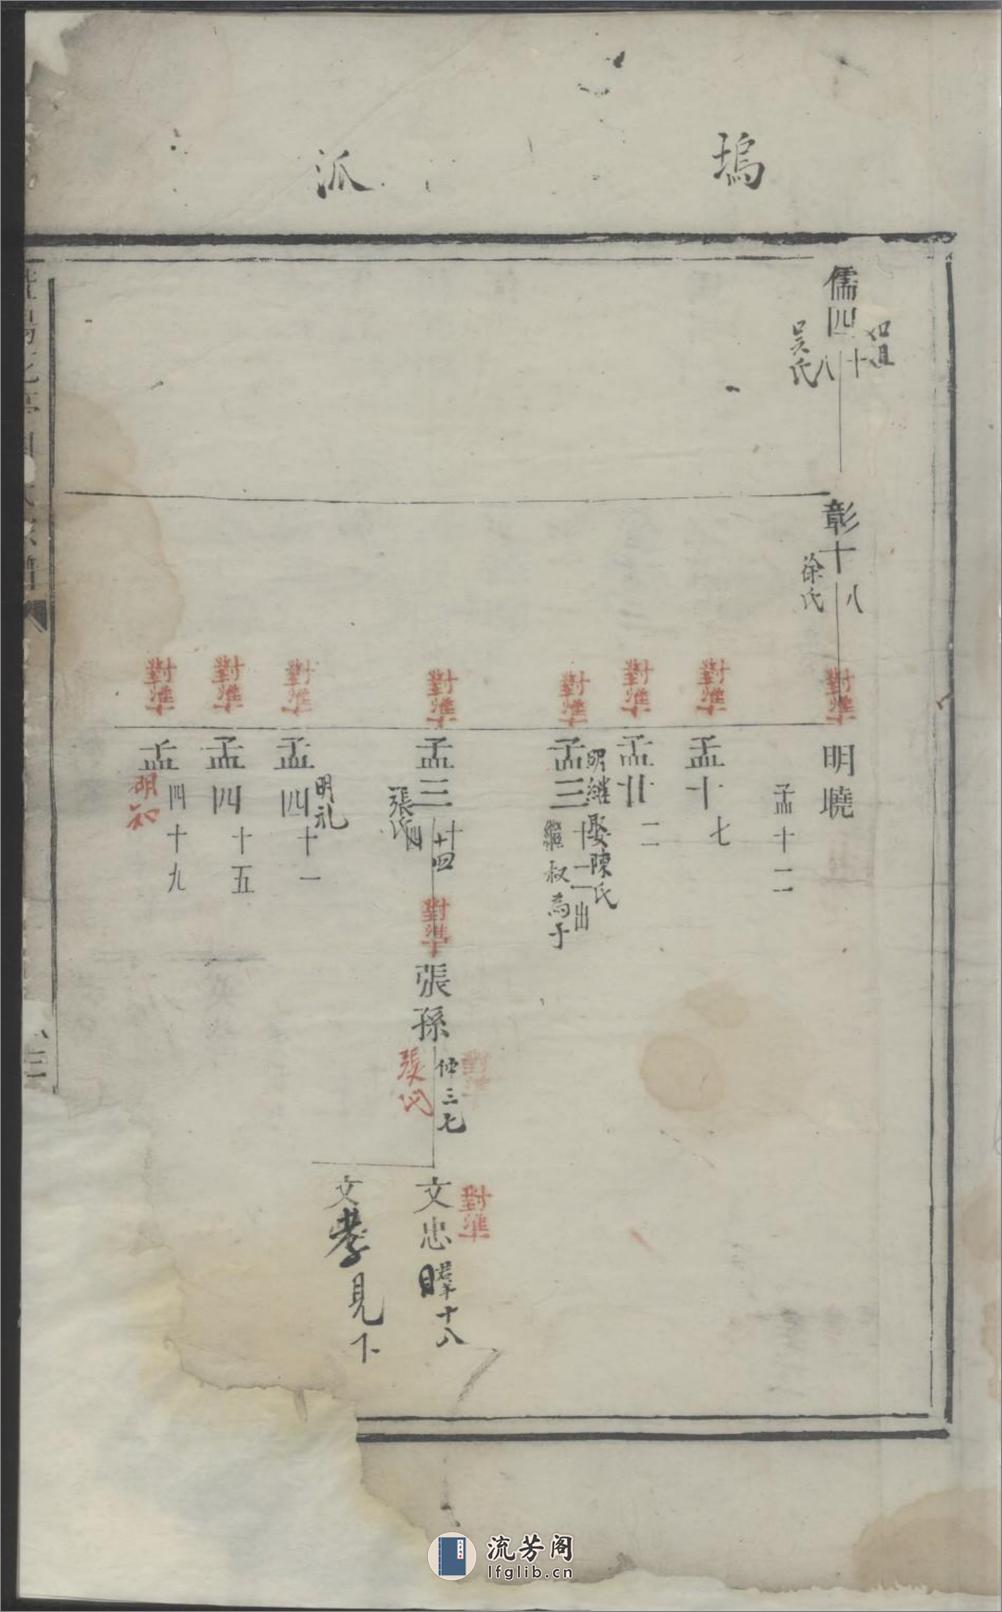 塢
派
儒四十八
吴氏
彰十八
徐氏
對準
明曉
孟十二
對準
孟十七
對準
孟廿二
對準
孟三十一出
繼叔為子
明繼 娶陳氏
對準
孟三十四
十四
張氏
對準
張孫
仲三七
張氏
對準
文忠
十八
對準
文孝見下
對準
孟四十一
明礼
對準
孟四十五
對準
孟四十九
明初
流芳阁
lfglib.cn